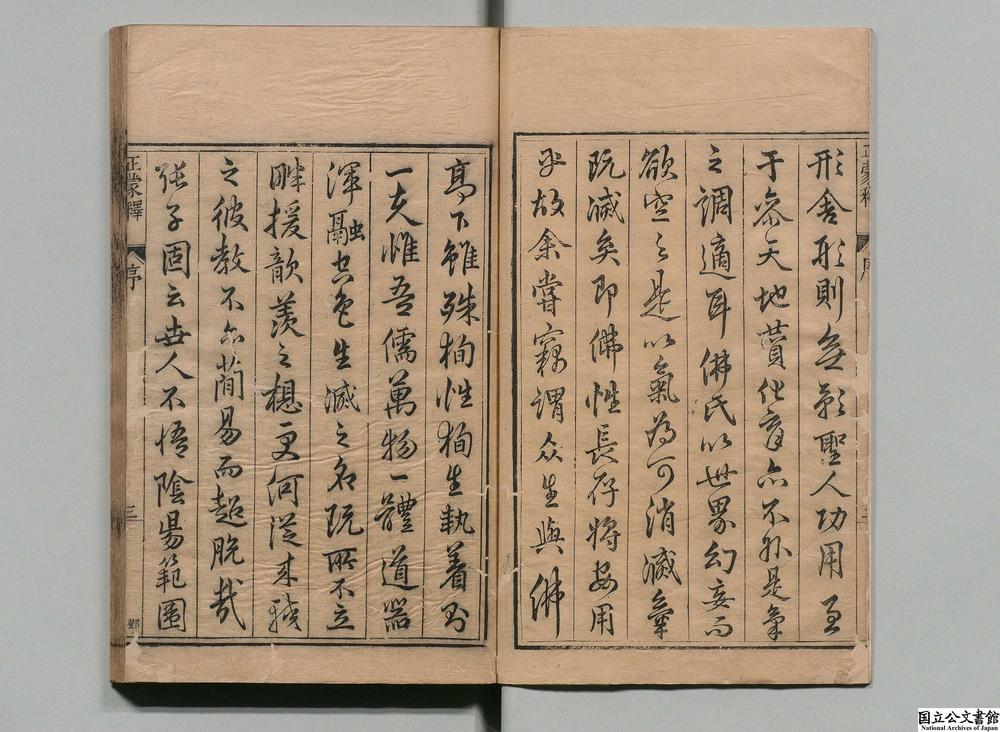 形舍形則無氣聖人功用至
于參天地贊化育亦不外是氣
之調適耳佛氏以世界幻妄而
欲空之是以氣為可消滅氣
既滅矣即佛性長存將安用
乎故余嘗竊謂众生與佛
高下雖殊徇性徇生執着則
一夫惟吾儒萬物一體道器
渾融空色生滅之名既所不立
畔援歆羨之想更何從來較
之彼教不亦簡易而超脫哉
張子固云世人不悟陰陽範圍
正蒙釋
序
三
鄧
国立公文書館
National Archives of Japan